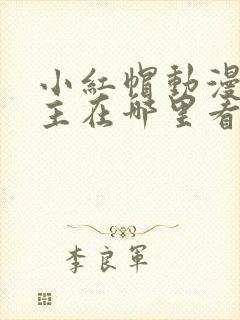 小紅帽動漫
主在哪里看
李良軍